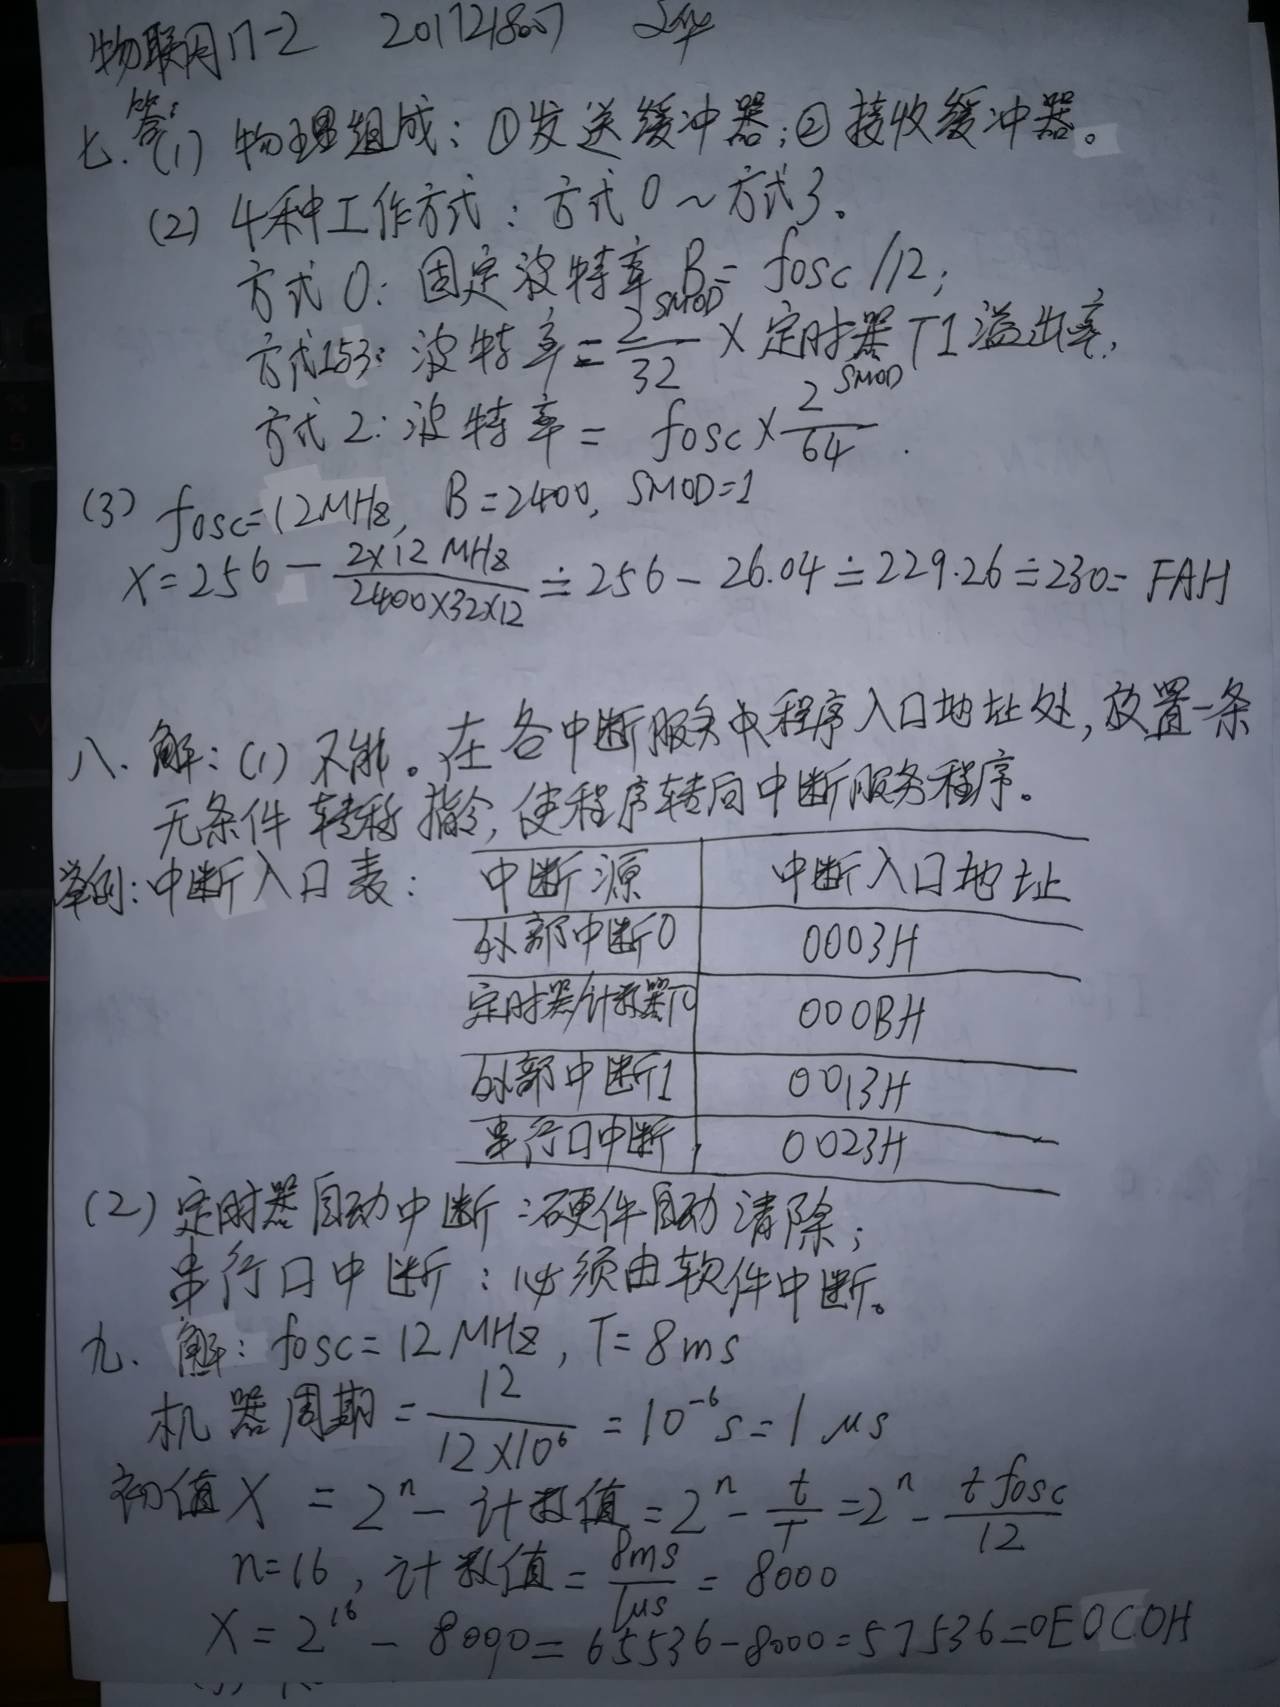 物联网17-2 201721807
七.答:(1) 物理组成:①发送缓冲器;②接收缓冲器。
(2) 4种工作方式:方式0~方式3。
方式0:固定波特率B=fosc/12;
方式1与3:波特率=2^SMOD/32×定时器T1溢出率.
方式2:波特率=fosc×2^SMOD/64.
(3) fosc=12MHz, B=2400, SMOD=1
X=256-2×12MHz/2400×32×12≐256-26.04≐229.26≐230=FAH
八.解:(1)不能。在各中断服务中程序入口地址处,放置一条
无条件转移指令,使程序转向中断服务程序。
举例:中断入口表:
中断源 中断入口地址
外部中断0 0003H
定时器/计数器T0 000BH
外部中断1 0013H
串行口中断 0023H
(2)定时器自动中断:硬件自动清除;
串行口中断:必须由软件中断。
九.解:fosc=12MHz,T=8ms
机器周期=12/12×10^6=10^-6s=1μs
初值X=2^n-计数值=2^n-t/T=2^n-tfosc/12
n=16,计数值=8ms/1μs=8000
X=2^16-8000=65536-8000=57536=0E0C0H